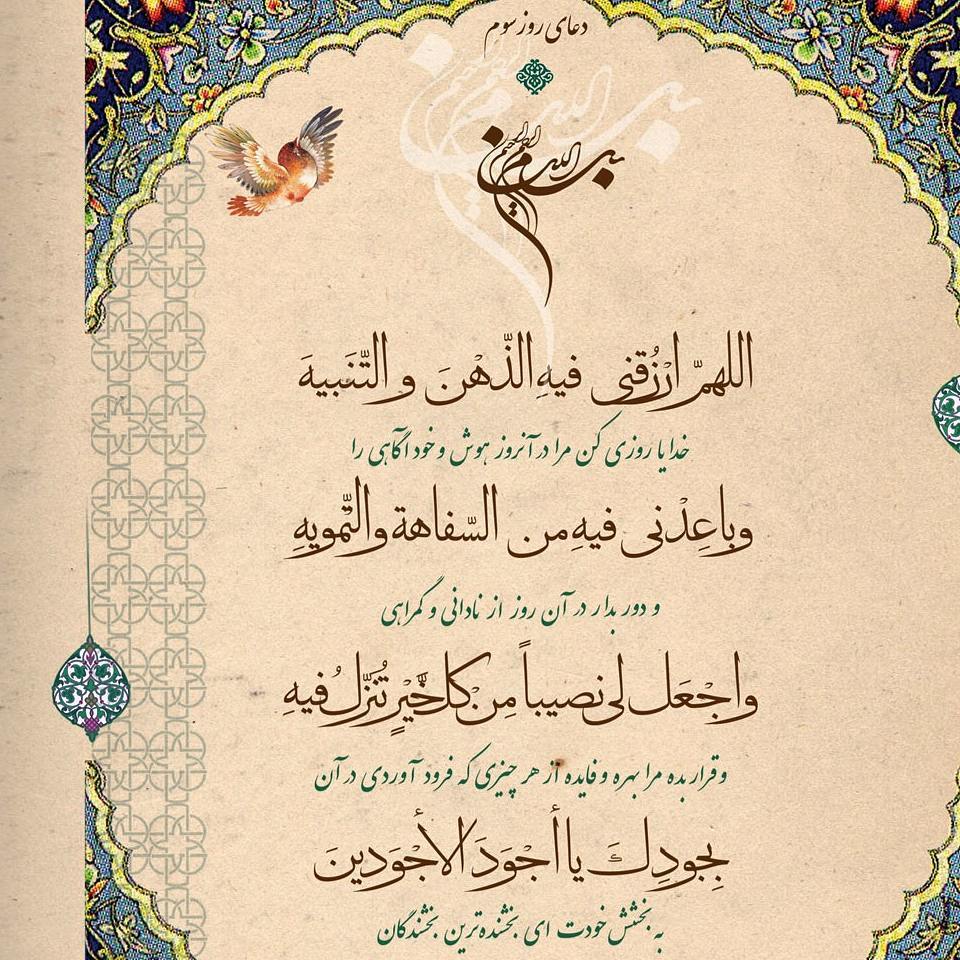 دعای روز سوم
بسم الله الرحمن الرحیم
اللهمّ ارْزُقنی فیهِ الذّهْنَ و التّنَبیهَ
خدایا روزی کن مرا در آنروز هوش و خود آگاهی را
وباعِدْنی فیهِ من السّفاهة والتّمویهِ
و دور بدار در آن روز از نادانی و گمراهی
واجْعَل لی نصیباً مِنْ کل خَیْرٍ تُنَزّلُ فیهِ
و قرار بده مرا بهره و فایده از هر چیزی که فرود آوردی در آن
بِجودِكَ یا أجْوَدَ الأجْوَدینَ
به بخشش خودت ای بخشنده‌ترین بخشندگان